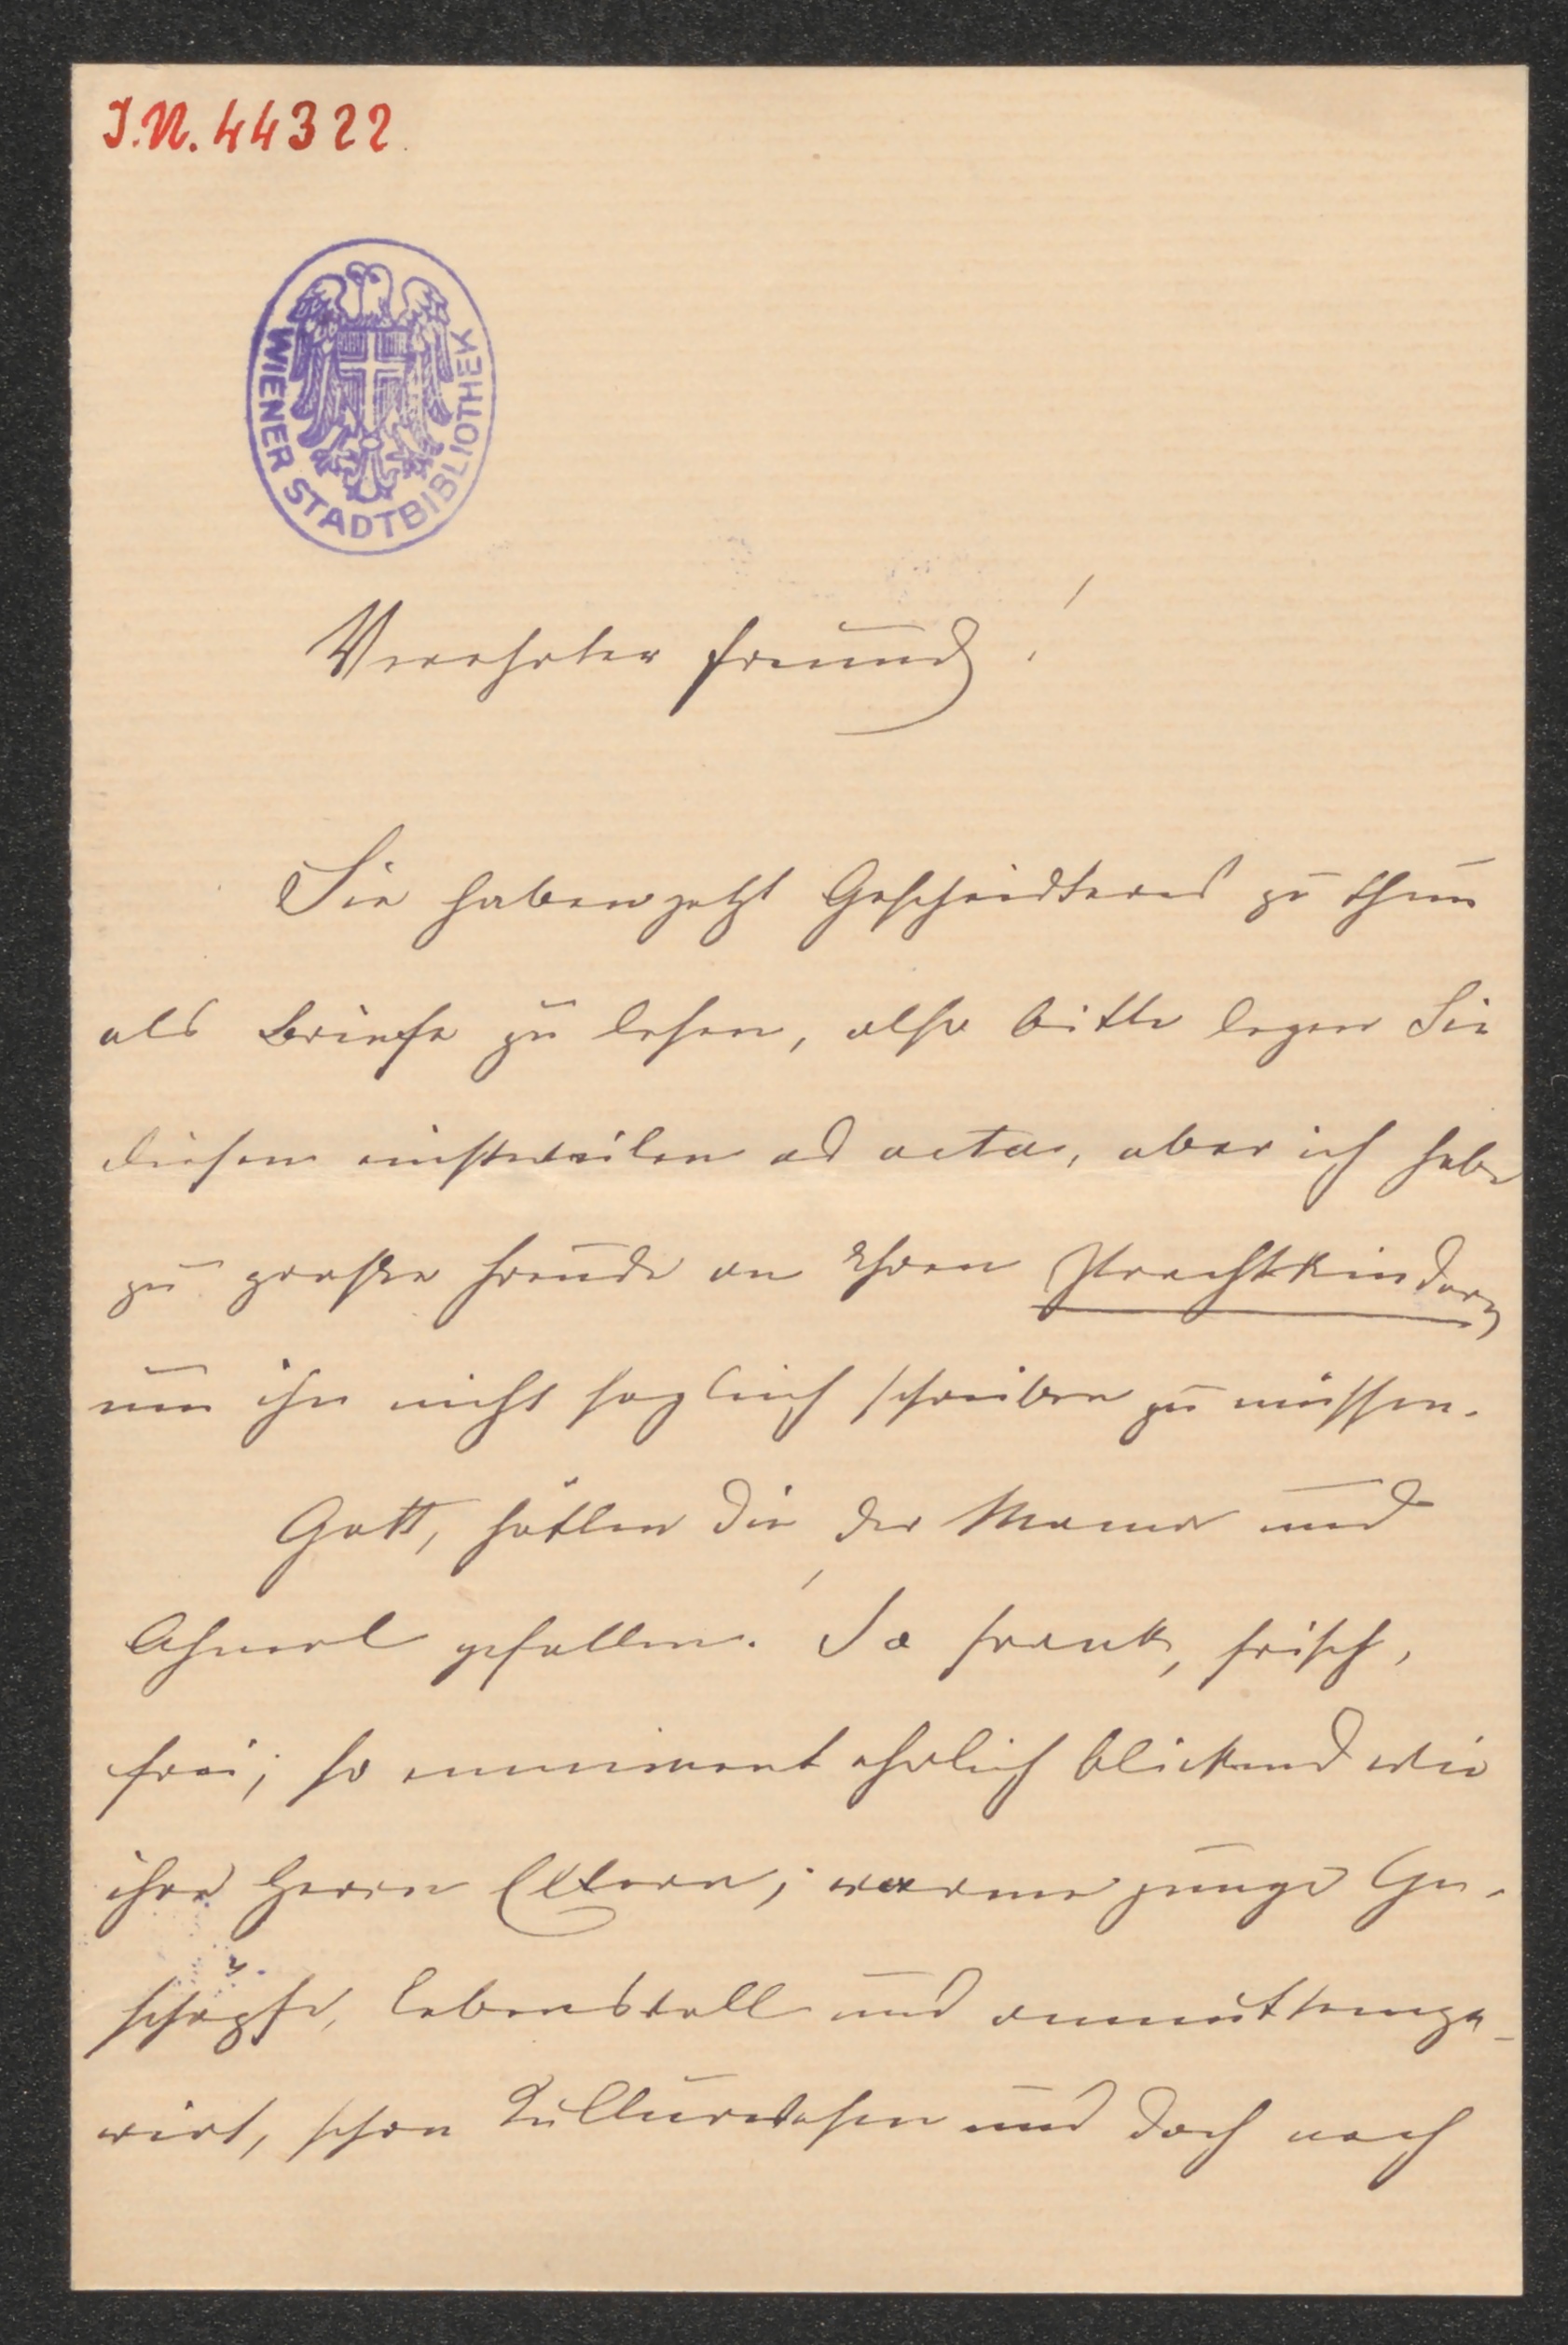 I.N. 44322
WIENER STADTBIBLIOTHEK
Verehrter Freund!
Sie haben jetzt Gescheidteres zu thun
als Briefe zu lesen, also bitte legen Sie
diesen einstweilen ad acta, aber ich habe
zu große Freude an Ihren Prachtkindern
um ihn nicht sogleich schreiben zu müssen.
Gott, hätten die der Mama und
gefallen! So frank, frisch,
frei; so eminent ehrlich blickend wie
ihre Herrn Eltern; warme junge Ge-
schöpfe, lebensvoll und
schon Kulturwesen und doch noch